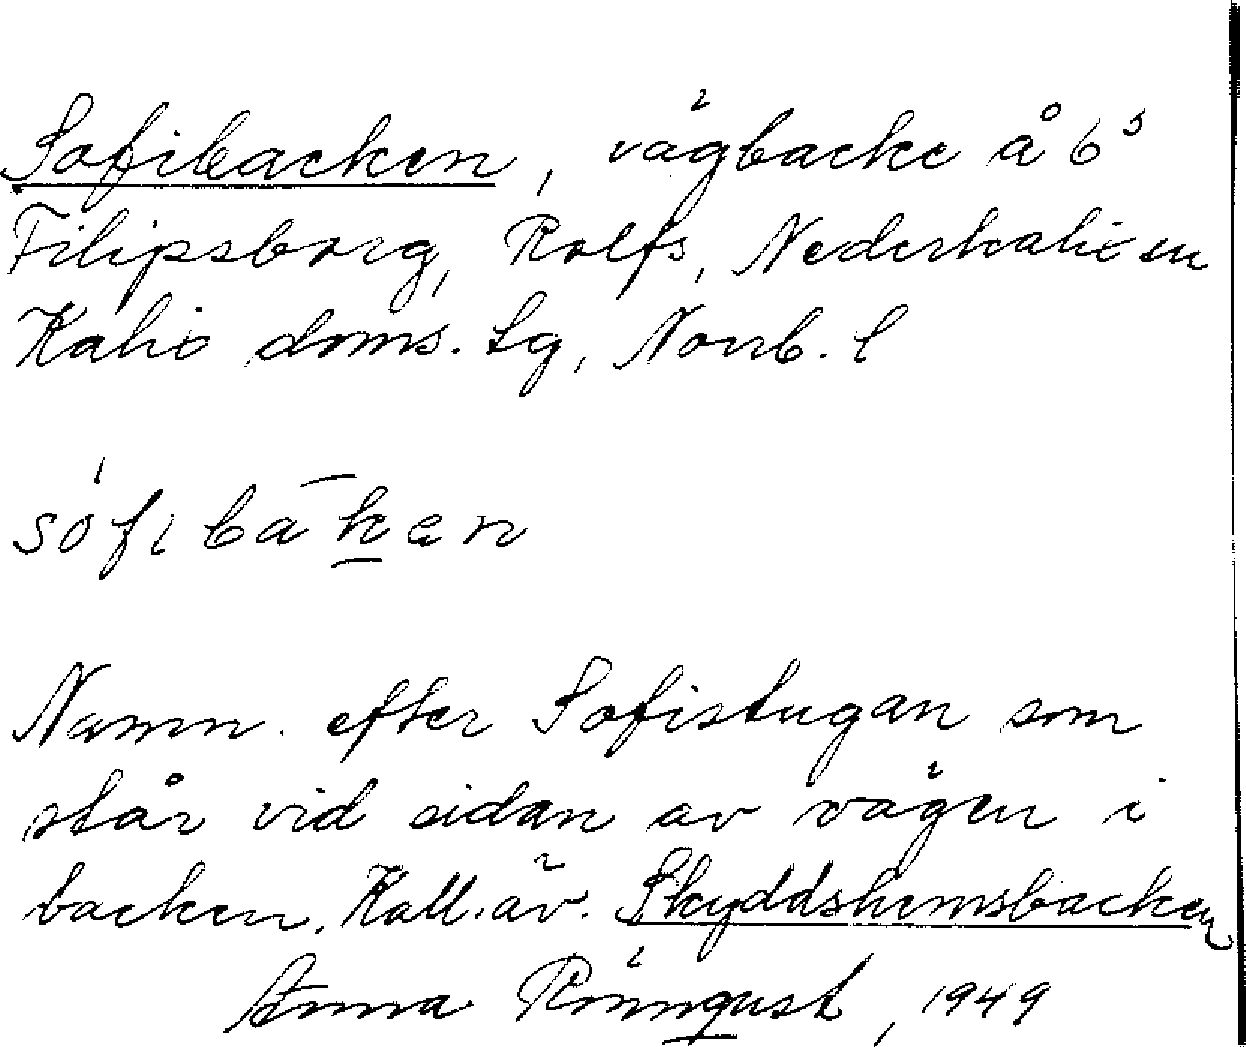 Sofibacken, vägbacke å 6⁵
Filipsborg, Rolfs, Nederkalix sn
Kalix doms. tg, Norrb. l
sófibāk̲en
Namn. efter Sofistugan som
står vid sidan av vägen i
backen. Kall. äv. Skyddshemsbacken
Anna Rönnqust, 1949